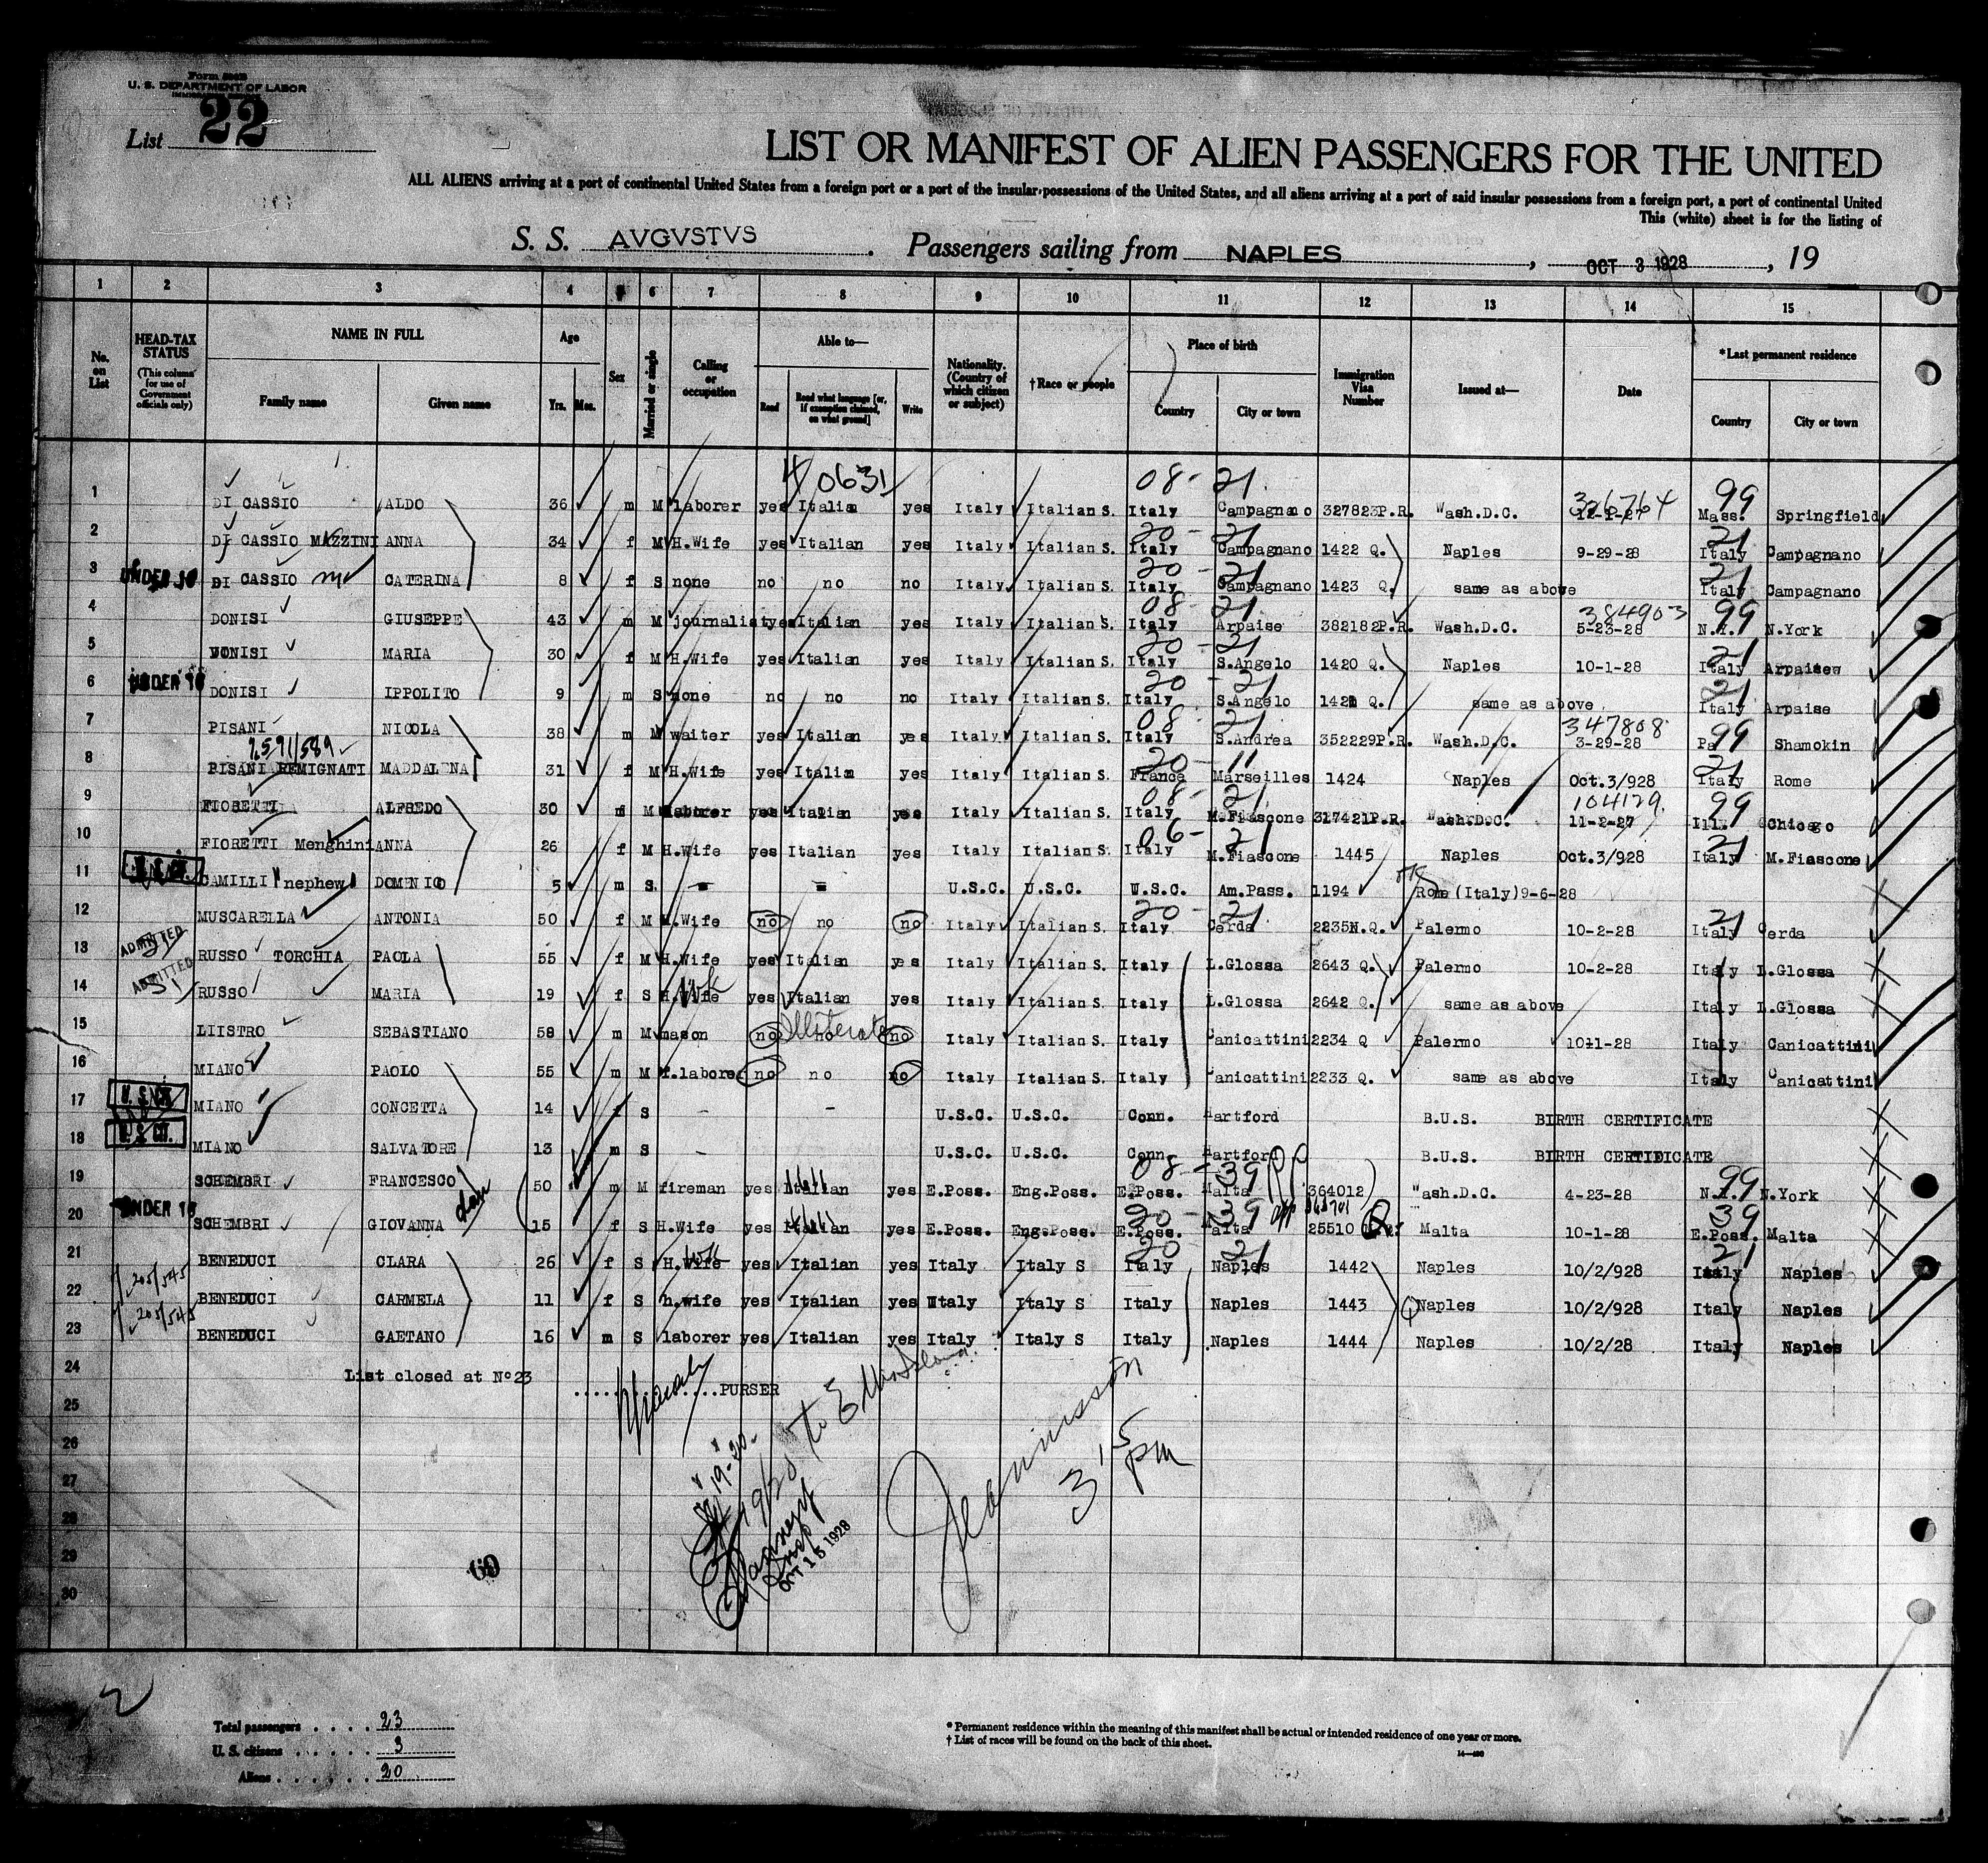 Form 500B
U. S. DEPARTMENT OF LABOR
List 22
LIST OR MANIFEST OF ALIEN PASSENGERS FOR THE UNITED
ALL ALIENS arriving at a port of continental United States from a foreign port or a port of the insular possessions of the United States, and all aliens arriving at a port of said insular possessions from a foreign port, a port of continental United
This (white) sheet is for the listing of
S. S. AVGVSTVS. Passengers sailing from NAPLES, OCT 3 1928, 19
1 2 3 4 5 6 7 8 9 10 11 12 13 14 15
No. on List
HEAD-TAX STATUS (This column for use of Government officials only)
NAME IN FULL Family name Given name
Age Yrs. Mos.
Sex
Married or single
Calling or occupation
Able to— Read Read what language [or, if exemption claimed, on what ground] Write
Nationality. (Country of which citizen or subject)
†Race or people
Place of birth Country City or town
Immigration Visa Number
Issued at—
Date
*Last permanent residence Country City or town
40631 08-21 326764 99
1 DI CASSIO ALDO 36 m M laborer yes Italian yes Italy Italian S. Italy Campagnano 327823P.R. Wash.D.C. 12-1-27 Mass. Springfield
20-21 21
2 DI CASSIO MAZZINI ANNA 34 f M H.Wife yes Italian yes Italy Italian S. Italy Campagnano 1422 Q. Naples 9-29-28 Italy Campagnano
20-21 21
3 UNDER 16 DI CASSIO CATERINA 8 f S none no no no Italy Italian S. Italy Campagnano 1423 Q. same as above Italy Campagnano
08-21 384903 99
4 DONISI GIUSEPPE 43 m M journalist yes Italian yes Italy Italian S. Italy Arpaise 382182P.R. Wash.D.C. 5-23-28 N.Y. N.York
20-21 21
5 DONISI MARIA 30 f M H.Wife yes Italian yes Italy Italian S. Italy S.Angelo 1420 Q. Naples 10-1-28 Italy Arpaisew
20-21 21
6 UNDER 16 DONISI IPPOLITO 9 m S none no no no Italy Italian S. Italy S.Angelo 1421 Q. same as above Italy Arpaise
08-21 347808 99
7 PISANI NICOLA 38 m M waiter yes Italian yes Italy Italian S. Italy S.Andrea 352229P.R. Wash.D.C. 3-29-28 Pa Shamokin
20-11 21
8 PISANI REMIGNATI MADDALENA 31 f M H.Wife yes Italian yes Italy Italian S. France Marseilles 1424 Naples Oct.3/928 Italy Rome
08-21 104129 99
9 FIORETTI ALFREDO 30 m M laborer yes Italian yes Italy Italian S. Italy M.Fiascone 317421P.R. Wash.D.C. 11-2-27 Ill. Chicago
06-21 21
10 FIORETTI Menghini ANNA 26 f M H.Wife yes Italian yes Italy Italian S. Italy M.Fiascone 1445 Naples Oct.3/928 Italy M.Fiascone
11 CAMILLI "nephew" DOMENICO 5 m S. - = U.S.C. U.S.C. U.S.C. Am.Pass. 1194 Rome (Italy) 9-6-28
20-21 21
12 MUSCARELLA ANTONIA 50 f M H.Wife no no no Italy Italian S. Italy Cerda 2235N.Q. Palermo 10-2-28 Italy Cerda
13 ADMITTED RUSSO TORCHIA PAOLA 55 f M H.Wife yes Italian yes Italy Italian S. Italy L.Glossa 2643 Q. Palermo 10-2-28 Italy L.Glossa
14 ADMITTED RUSSO MARIA 19 f S H.Wife wk yes Italian yes Italy Italian S. Italy L.Glossa 2642 Q. same as above Italy L.Glossa
15 LIISTRO SEBASTIANO 58 m M mason no no Illiterate no Italy Italian S. Italy Canicattini 2234 Q Palermo 10-1-28 Italy Canicattini
16 MIANO PAOLO 55 m M f.laborer no no no Italy Italian S. Italy Canicattini 2233 Q. same as above Italy Canicattini
17 U. S. CIT. MIANO CONCETTA 14 f S - - U.S.C. U.S.C. Conn. Hartford B.U.S. BIRTH CERTIFICATE
18 U. S. CIT. MIANO SALVATORE 13 m S - U.S.C. U.S.C. Conn. Hartford B.U.S. BIRTH CERTIFICATE
08-39 99
19 SCHEMBRI FRANCESCO 50 m M fireman yes Italian yes E.Poss. Eng.Poss. E.Poss. Malta 364012 Wash.D.C. 4-23-28 N.Y. N.York
20-39 39
20 UNDER 16 SCHEMBRI GIOVANNA dau 15 f S H.Wife yes Italian yes E.Poss. Eng.Poss. E.Poss. Malta 25510 Malta 10-1-28 E.Poss. Malta
20 21 21
21 BENEDUCI CLARA 26 f S H.Wife wk yes Italian yes Italy Italy S Italy Naples 1442 Naples 10/2/928 Italy Naples
22 BENEDUCI CARMELA 11 f S h.wife yes Italian yes Italy Italy S Italy Naples 1443 Naples 10/2/928 Italy Naples
23 BENEDUCI GAETANO 16 m S laborer yes Italian yes Italy Italy S Italy Naples 1444 Naples 10/2/28 Italy Naples
24 List closed at No 23 ....................PURSER
25
26
27
28
29
30
19-20
19/20 to Ellis Island
OCT 15 1928
3 15 pm
Total passengers . . . . 23
U. S. citizens . . . . . 3
Aliens . . . . . . 20
* Permanent residence within the meaning of this manifest shall be actual or intended residence of one year or more.
† List of races will be found on the back of this sheet.